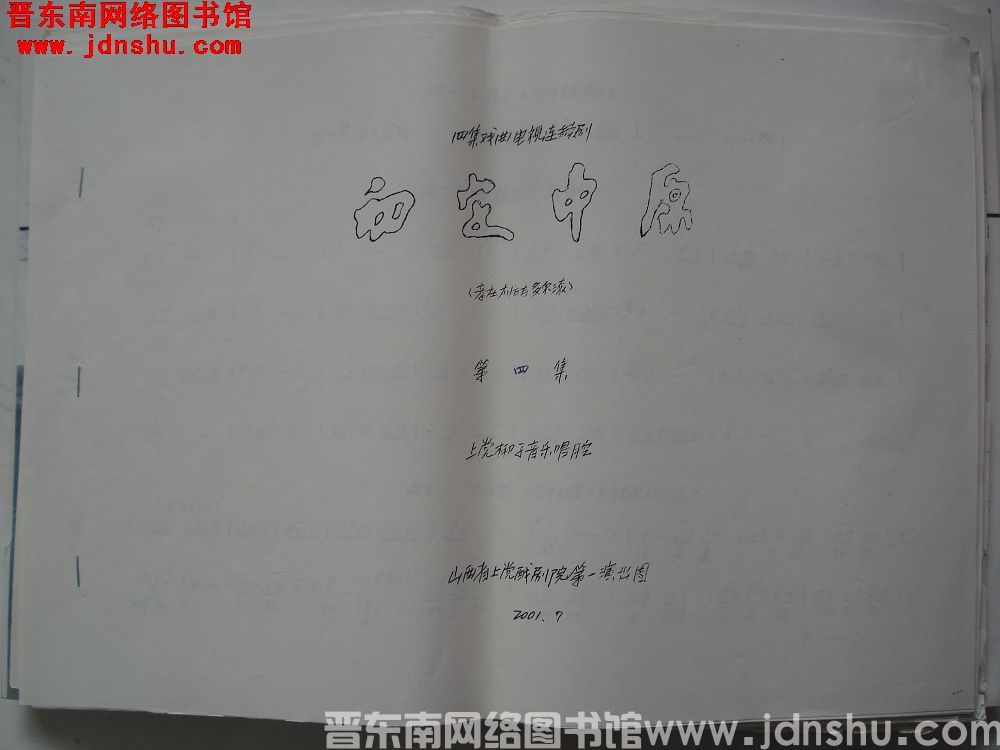 晋东南网络图书馆
www.jdnshu.com
四集戏曲电视连续剧
初定中原
(孝庄与多尔滚)
第四集
上党梆子音乐唱腔
山西省上党戏剧院第一演出团
2001.7
晋东南网络图书馆www.jdnshu.com